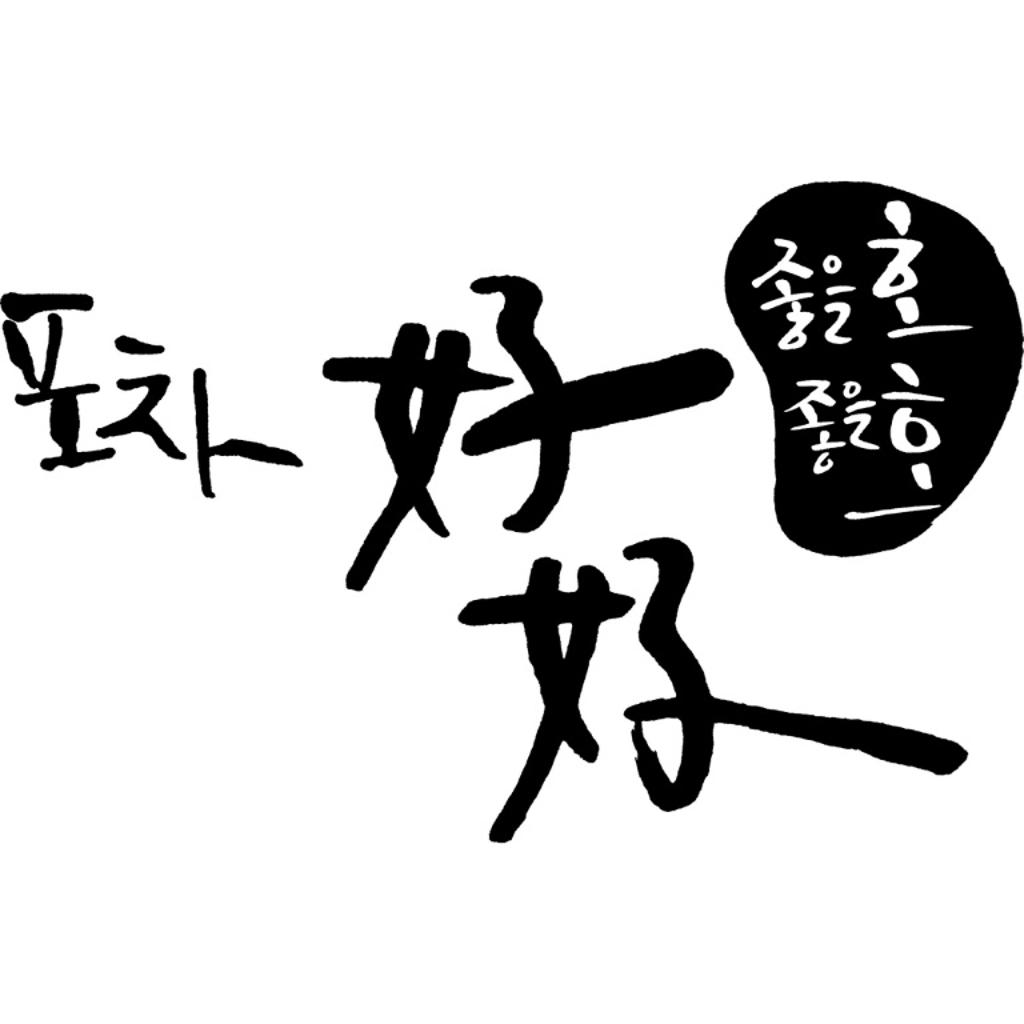 포차 好
好
좋을 호
좋을 호